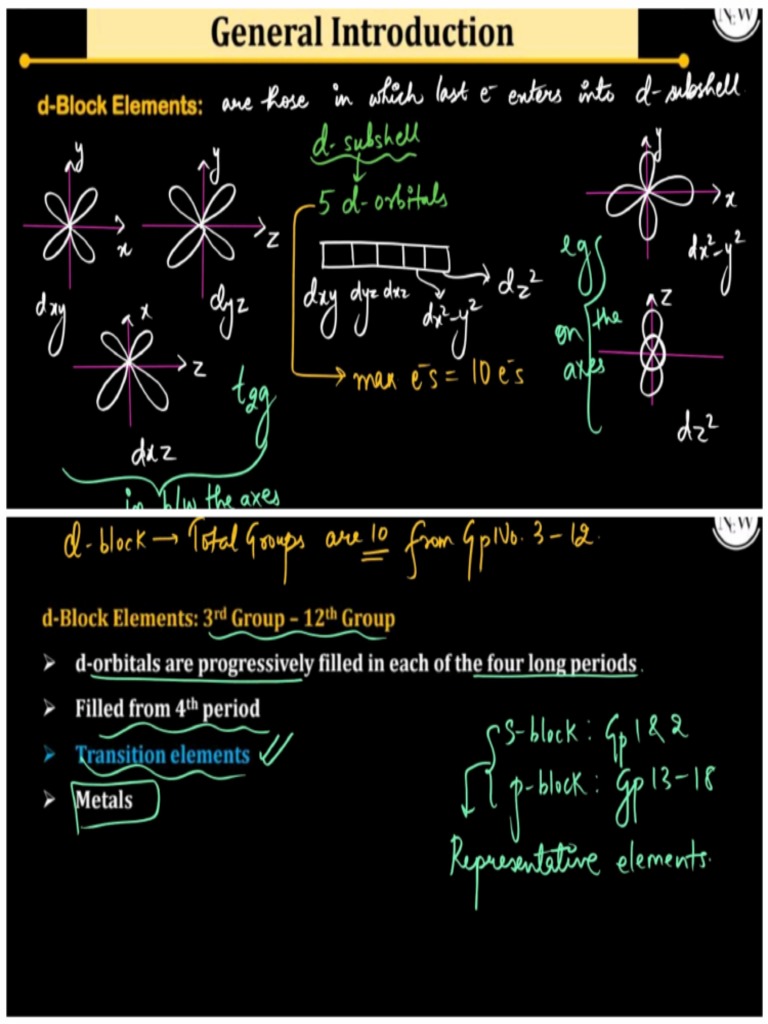 General Introduction
NEW
d-Block Elements: are those in which last e⁻ enters into d-subshell.
d-subshell
5 d-orbitals
y
x
dxy
y
z
dyz
x
z
dxz
t2g
in b/w the axes
dxy dyz dxz dx²-y² dz²
max e⁻s = 10 e⁻s
eg
on the
axes
y
x
dx²-y²
z
dz²
NEW
d-block → Total Groups are 10 from Gp No. 3-12.
d-Block Elements: 3rd Group – 12th Group
➤ d-orbitals are progressively filled in each of the four long periods.
➤ Filled from 4th period
➤ Transition elements
➤ Metals
s-block: Gp 1 & 2
p-block: Gp 13-18
Representative elements.